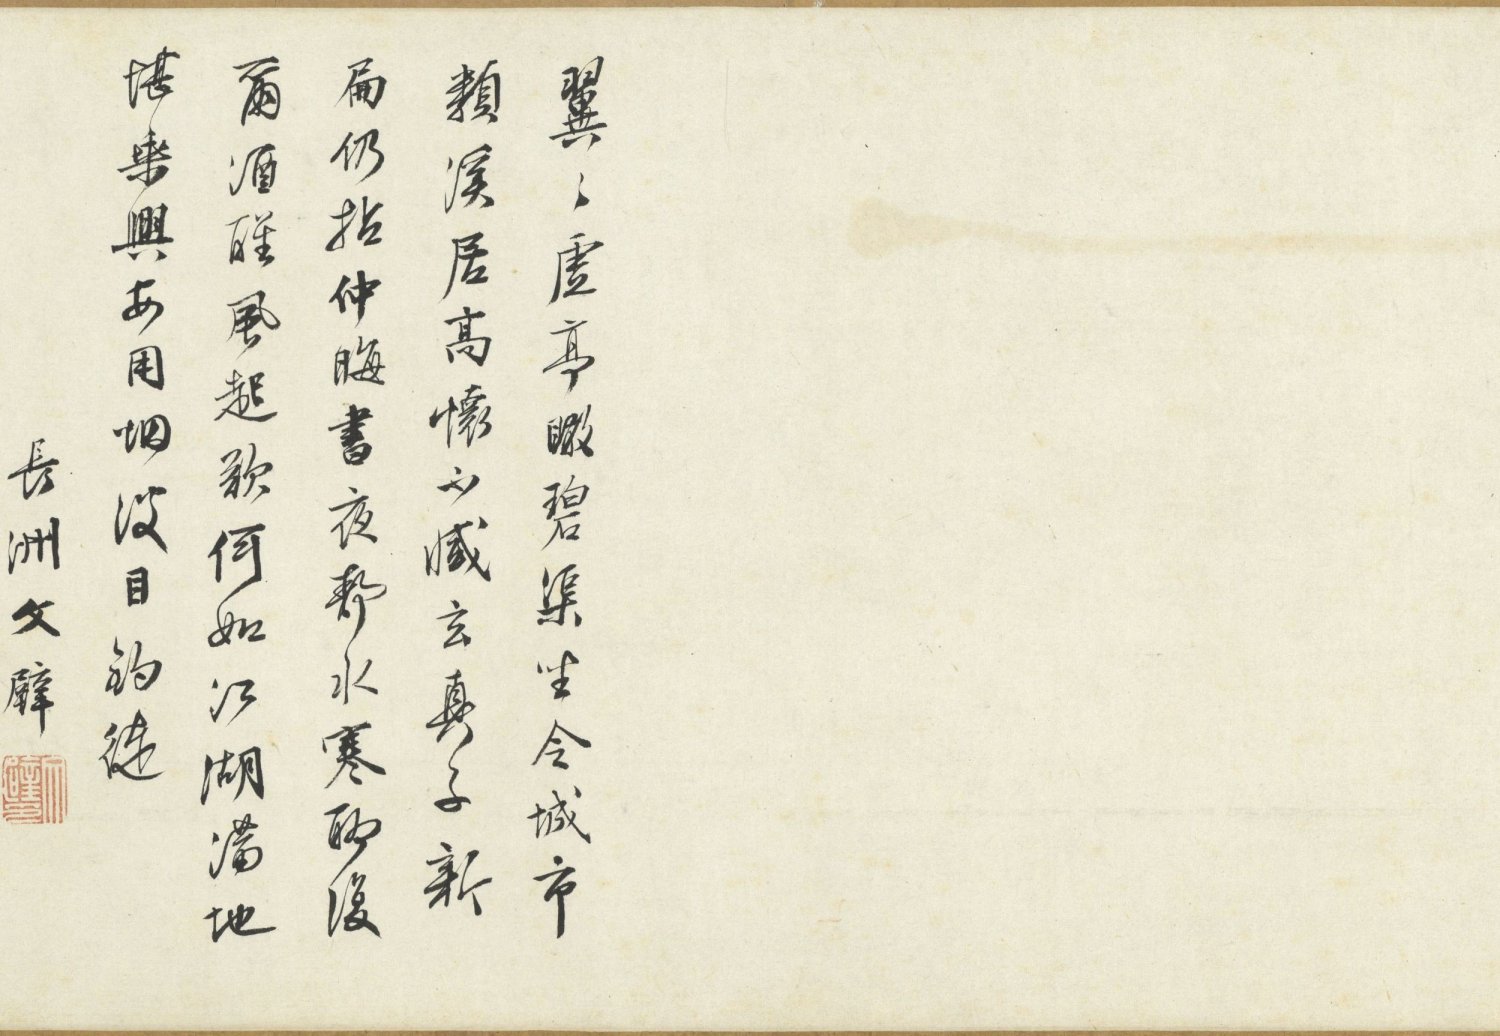 翼〻虛亭瞰碧渠坐令城市
類溪居高懷不減玄真子新
扁仍拈仲晦書夜静水寒聊復
爾酒醒風起欲何如江湖滿地
堪乘興安用烟波目釣徒
長洲文壁